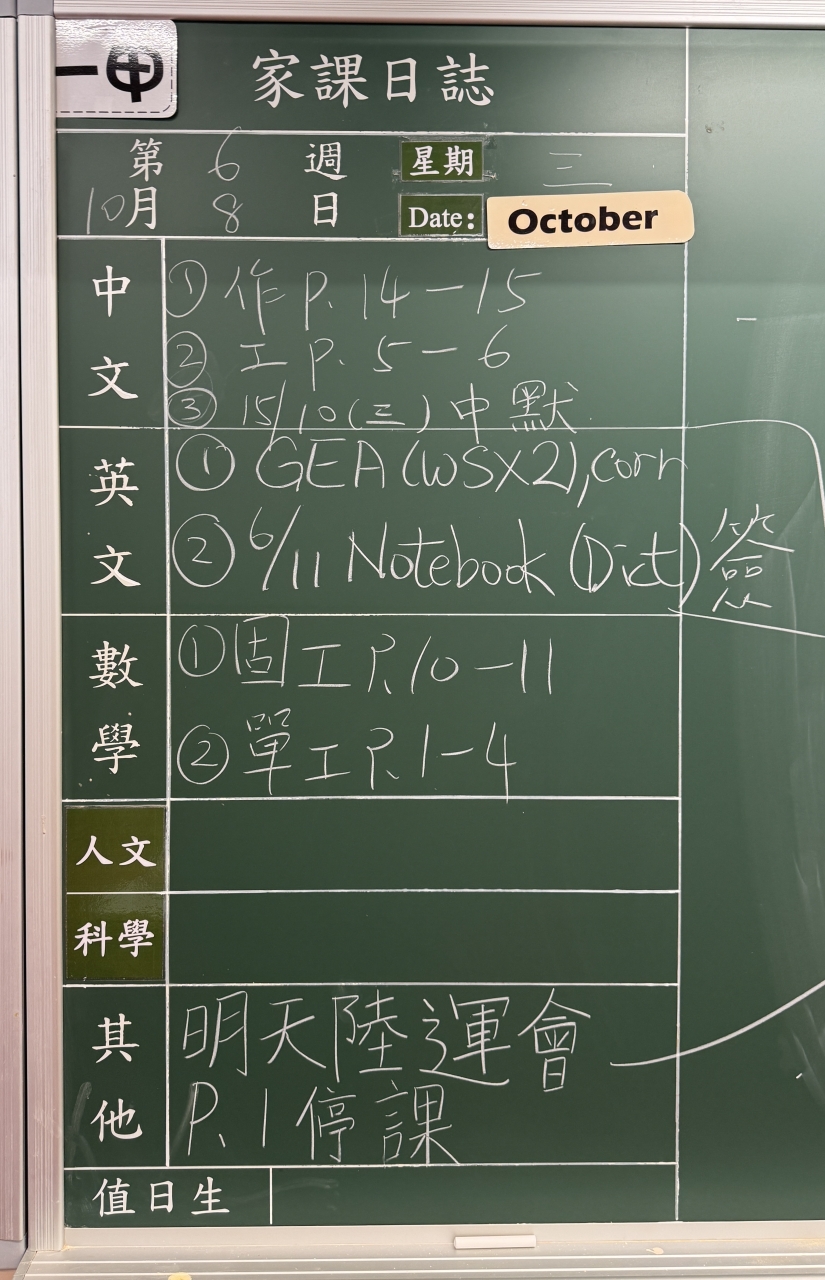 一甲
家課日誌
第 6 週 星期 三
10月 8 日 Date: October
中文
① 作 P. 14-15
② 工 P. 5-6
③ 15/10(三) 中默
英文
① GEA (WSX2), corr
② 6/11 Notebook (Dict) 簽
數學
① 固工 P. 10-11
② 單工 P. 1-4
人文
科學
其他
明天陸運會
P. 1 停課
值日生